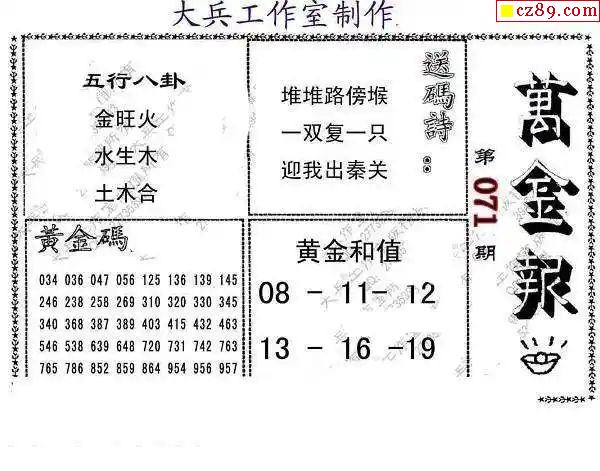 大兵工作室制作
cz89.com
五行八卦
金旺火
水生木
土木合
送碼詩:
堆堆路傍堠
一双复一只
迎我出秦关
萬金報
第071期
黃金碼
034 036 047 056 125 136 139 145
246 238 258 269 310 320 330 345
340 368 387 389 403 415 432 463
546 538 639 648 720 731 742 763
765 786 852 859 864 954 956 957
黄金和值
08 - 11- 12
13 - 16 -19